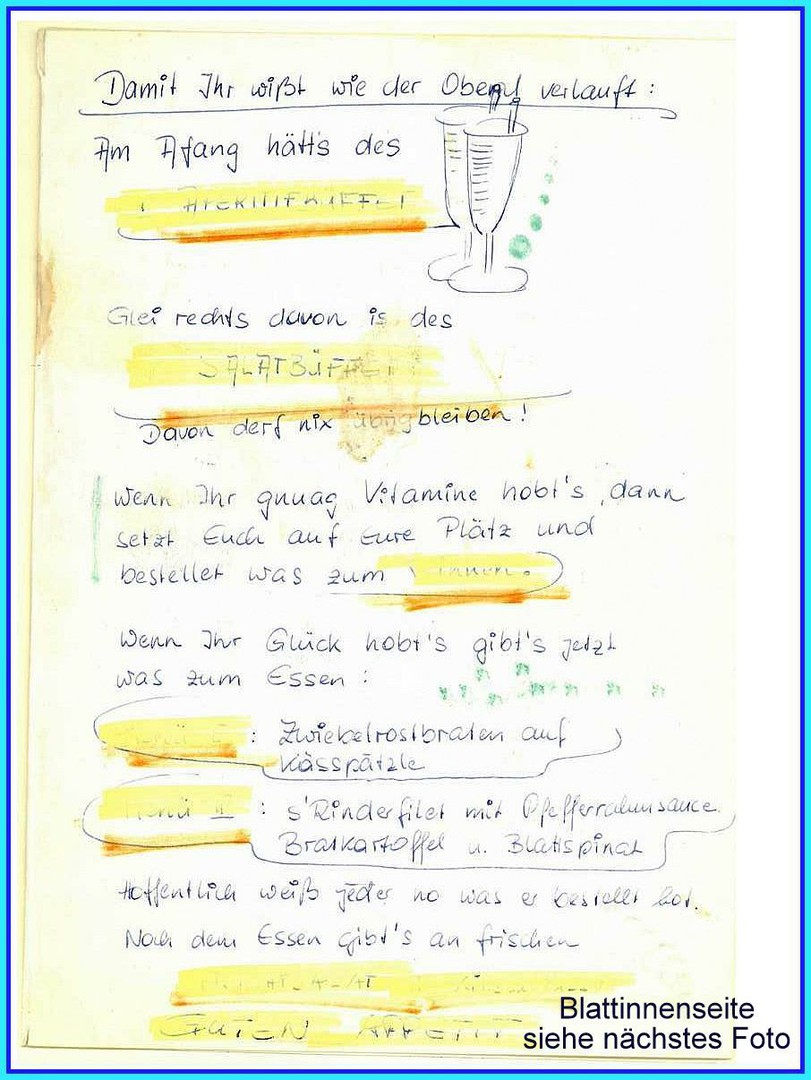 Damit Ihr wißt wie der Obend verlauft:
Am Afang hätt's des
APERITIFBÜFFET
Glei rechts davon is des
SALATBÜFFET
Davon derf nix übrigbleiben!
Wenn Ihr gnuag Vitamine hobt's, dann
setzt Euch auf Eure Plätz und
bestellet was zum
Wenn Ihr Glück hobt's gibt's jetzt
was zum Essen:
Menü I: Zwiebelrostbraten auf
Kässpätzle
Menü II: s'Rinderfilet mit Pfefferrahmsauce
Bratkartoffel u. Blattspinat
Hoffentlich weiß jeder no was er bestellt hot.
Noch dem Essen gibt's an frischen
GUTEN APPETIT
Blattinnenseite
siehe nächstes Foto